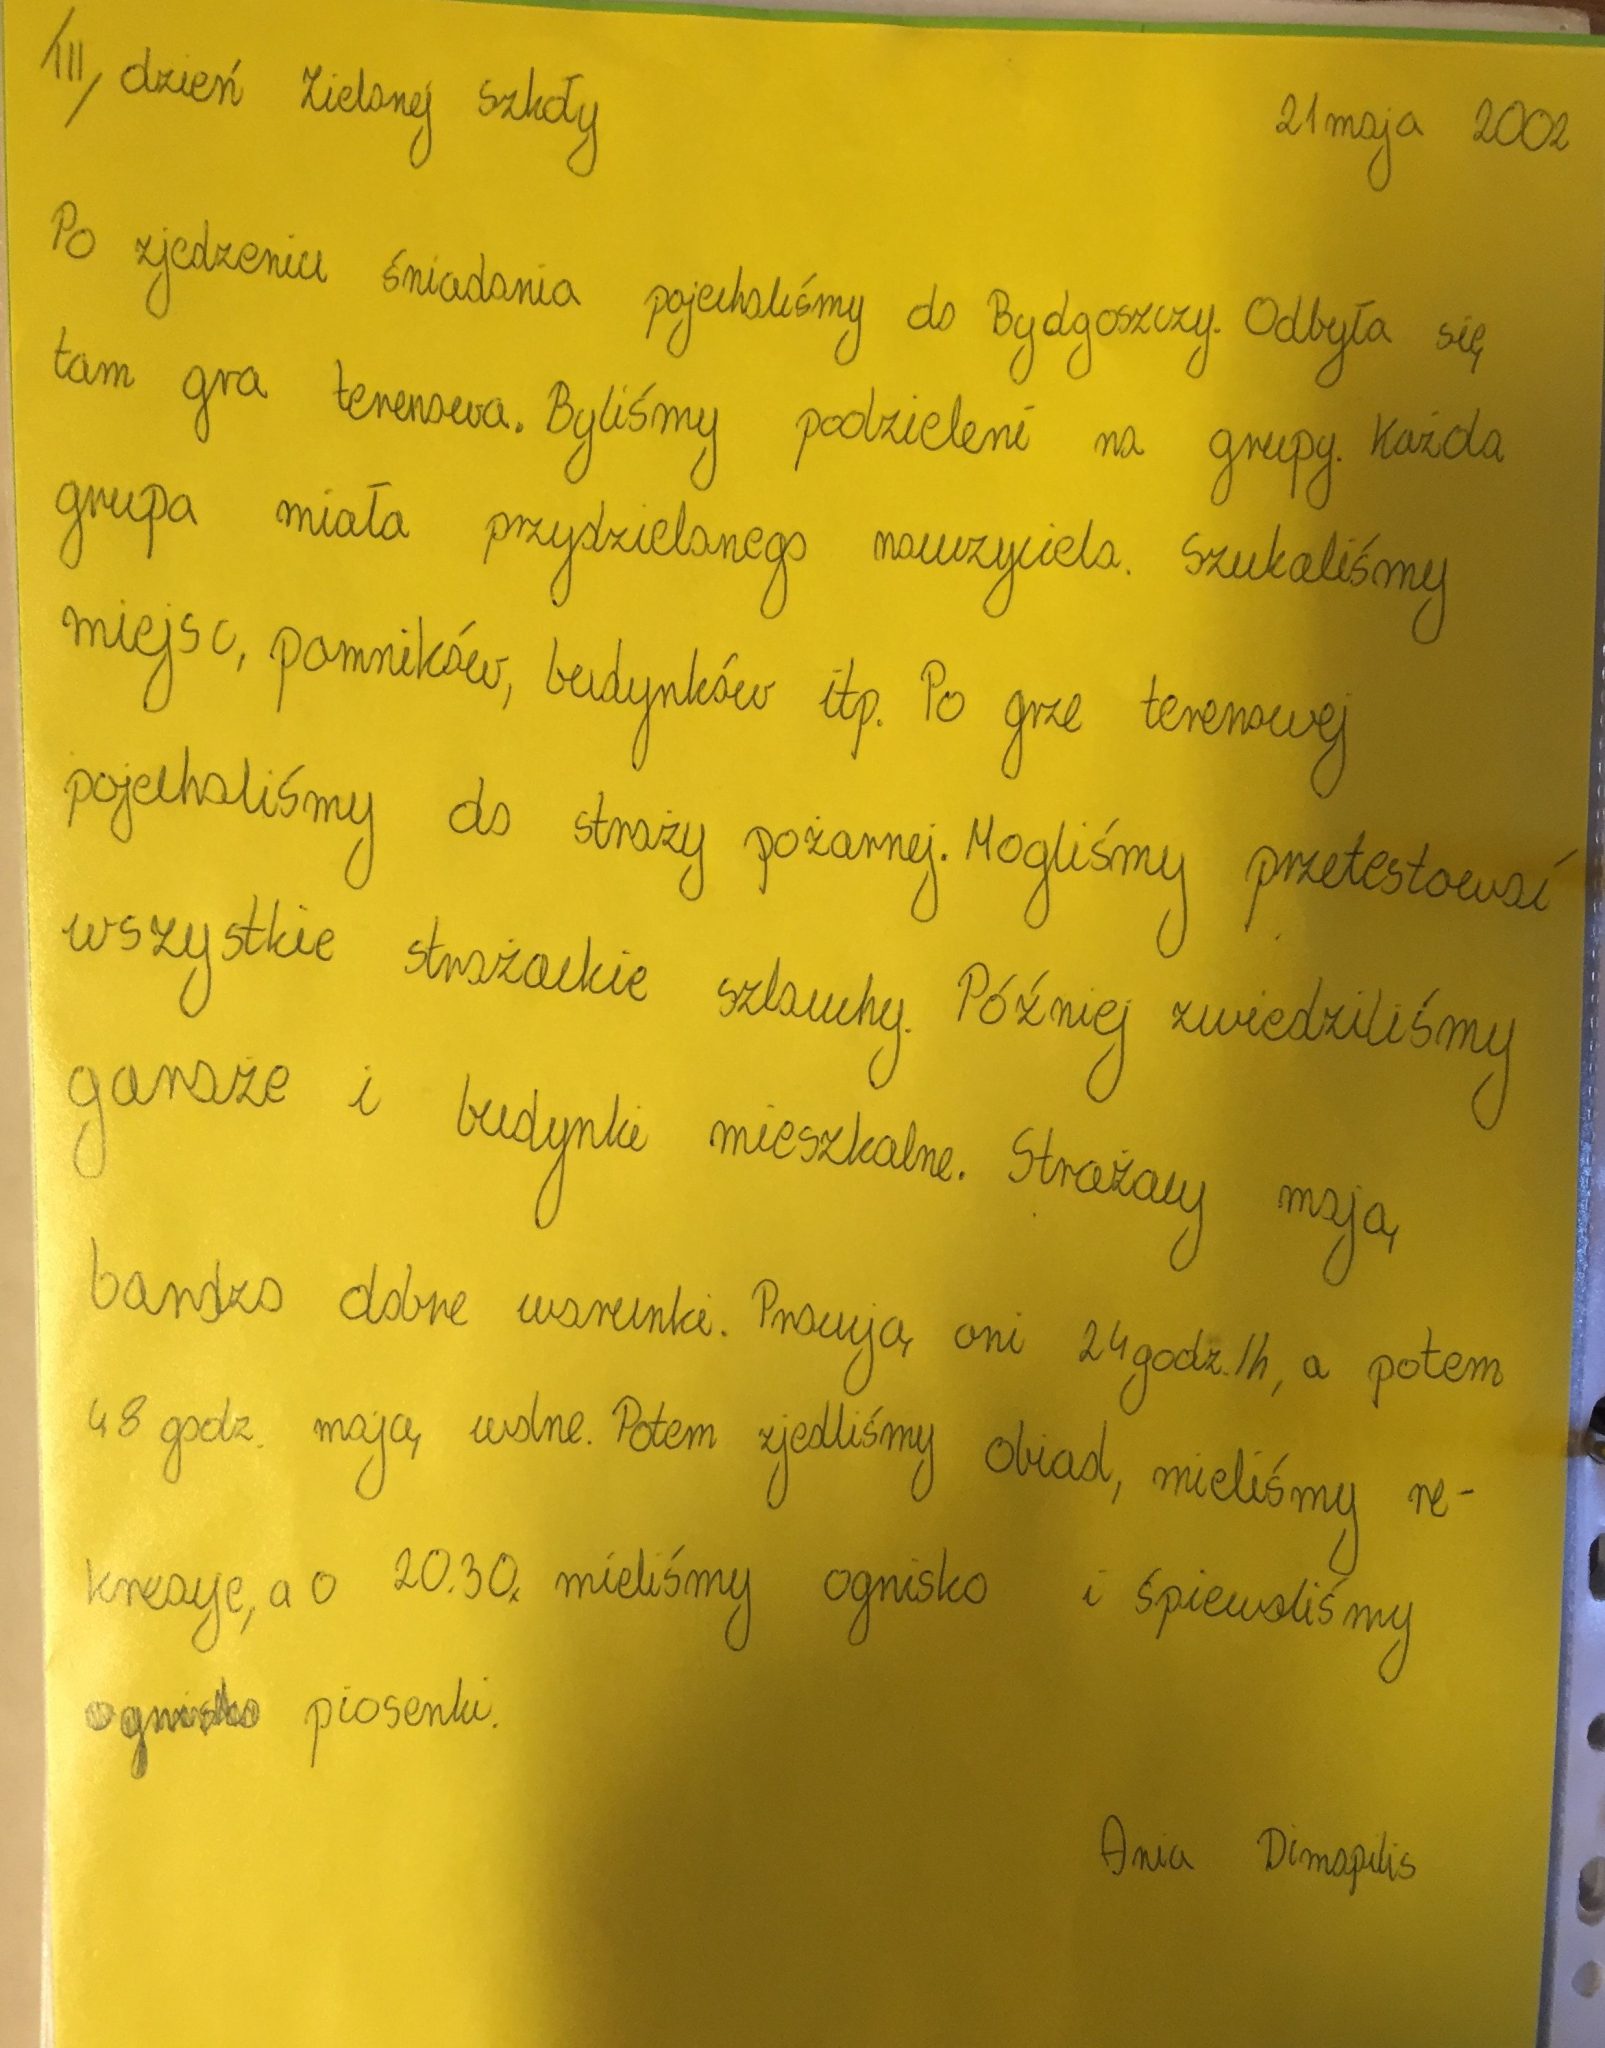 III, dzień Zielonej Szkoły 21 maja 2002
Po zjedzeniu śniadania pojechaliśmy do Bydgoszczy. Odbyła się
tam gra terenowa. Byliśmy podzieleni na grupy. Każda
grupa miała przydzielonego nauczyciela. Szukaliśmy
miejsc, pomników, budynków itp. Po grze terenowej
pojechaliśmy do straży pożarnej. Mogliśmy przetestować
wszystkie strażackie szlauchy. Później zwiedziliśmy
garaże i budynki mieszkalne. Strażacy mają
bardzo dobre warunki. Pracują oni 24godz./h, a potem
48 godz. mają wolne. Potem zjedliśmy obiad, mieliśmy re-
kreację, a o 20.30. mieliśmy ognisko i śpiewaliśmy
ognisko piosenki.
Ania Dimapilis